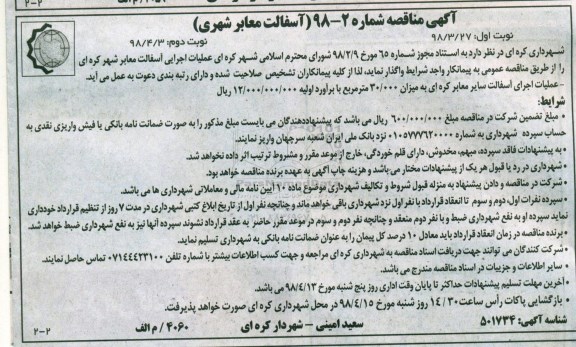 آگهی مناقصه شماره ۲-۹۸ (آسفالت معابر شهری)
نوبت اول: ۹۸/۳/۲۷
نوبت دوم: ۹۸/۴/۳
شهرداری کره ای در نظر دارد به استناد مجوز شماره ۶۵ مورخ ۹۸/۲/۹ شورای محترم اسلامی شهر کره ای عملیات اجرایی آسفالت معابر شهر کره ای
را از طریق مناقصه عمومی به پیمانکار واجد شرایط واگذار نماید، لذا از کلیه پیمانکاران تشخیص صلاحیت شده و دارای رتبه بندی دعوت به عمل می آید.
- عملیات اجرای آسفالت سایر معابر کره ای به میزان ۳۰/۰۰۰ مترمربع با برآورد اولیه ۱۲/۰۰۰/۰۰۰/۰۰۰ ریال
شرایط:
• مبلغ تضمین شرکت در مناقصه مبلغ ۶۰۰/۰۰۰/۰۰۰ ریال می باشد که پیشنهاددهندگان می بایست مبلغ مذکور را به صورت ضمانت نامه بانکی یا فیش واریزی نقدی به
حساب سپرده شهرداری به شماره ۰۱۰۵۷۷۷۶۲۰۰۰۰ نزد بانک ملی ایران شعبه سرچهان واریز نمایند.
• به پیشنهادات فاقد سپرده، مبهم، مخدوش، دارای قلم خوردگی، خارج از موعد مقرر و مشروط ترتیب اثر داده نخواهد شد.
• شهرداری در رد یا قبول هر یک از پیشنهادات مختار می باشد و هزینه چاپ آگهی به عهده برنده مناقصه خواهد بود.
• شرکت در مناقصه و دادن پیشنهاد به منزله قبول شروط و تکالیف شهرداری موضوع ماده ۱۰ آیین نامه مالی و معاملاتی شهرداری ها می باشد.
• سپرده نفرات اول، دوم و سوم تا انعقاد قرارداد با نفر اول نزد شهرداری باقی خواهد ماند و چنانچه نفر اول از تاریخ ابلاغ کتبی شهرداری در مدت ۷ روز از تنظیم قرارداد خودداری
نماید سپرده او به نفع شهرداری ضبط و با نفر دوم منعقد و چنانچه نفر دوم و سوم در موعد مقرر حاضر به عقد قرارداد نشوند سپرده آنها نیز به نفع شهرداری ضبط خواهد شد.
• برنده مناقصه در زمان انعقاد قرارداد باید معادل ۱۰ درصد کل پیمان را به عنوان ضمانت نامه بانکی به شهرداری تسلیم نماید.
• شرکت کنندگان می توانند جهت دریافت اسناد مناقصه به شهرداری کره ای مراجعه و جهت کسب اطلاعات بیشتر با شماره تلفن ۰۷۱۴۴۴۲۳۱۰۰ تماس حاصل نمایند.
• سایر اطلاعات و جزییات در اسناد مناقصه مندرج می باشد.
• آخرین مهلت تسلیم پیشنهادات حداکثر تا پایان وقت اداری روز پنج شنبه مورخ ۹۸/۴/۱۳ می باشد.
• بازگشایی پاکات رأس ساعت ۱۴/۳۰ روز شنبه مورخ ۹۸/۴/۱۵ در محل شهرداری کره ای صورت خواهد پذیرفت.
شناسه آگهی: ۵۰۱۷۳۴
سعید امینی - شهردار کره ای
۴۰۶۰ / م الف
۲-۲